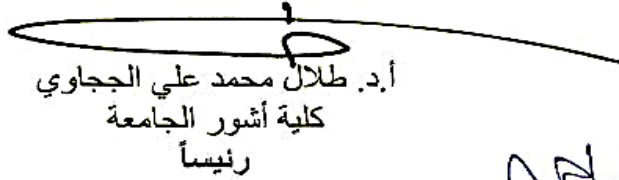 أ.د. طلال محمد علي الججاوي
كلية أشور الجامعة
رئيساً